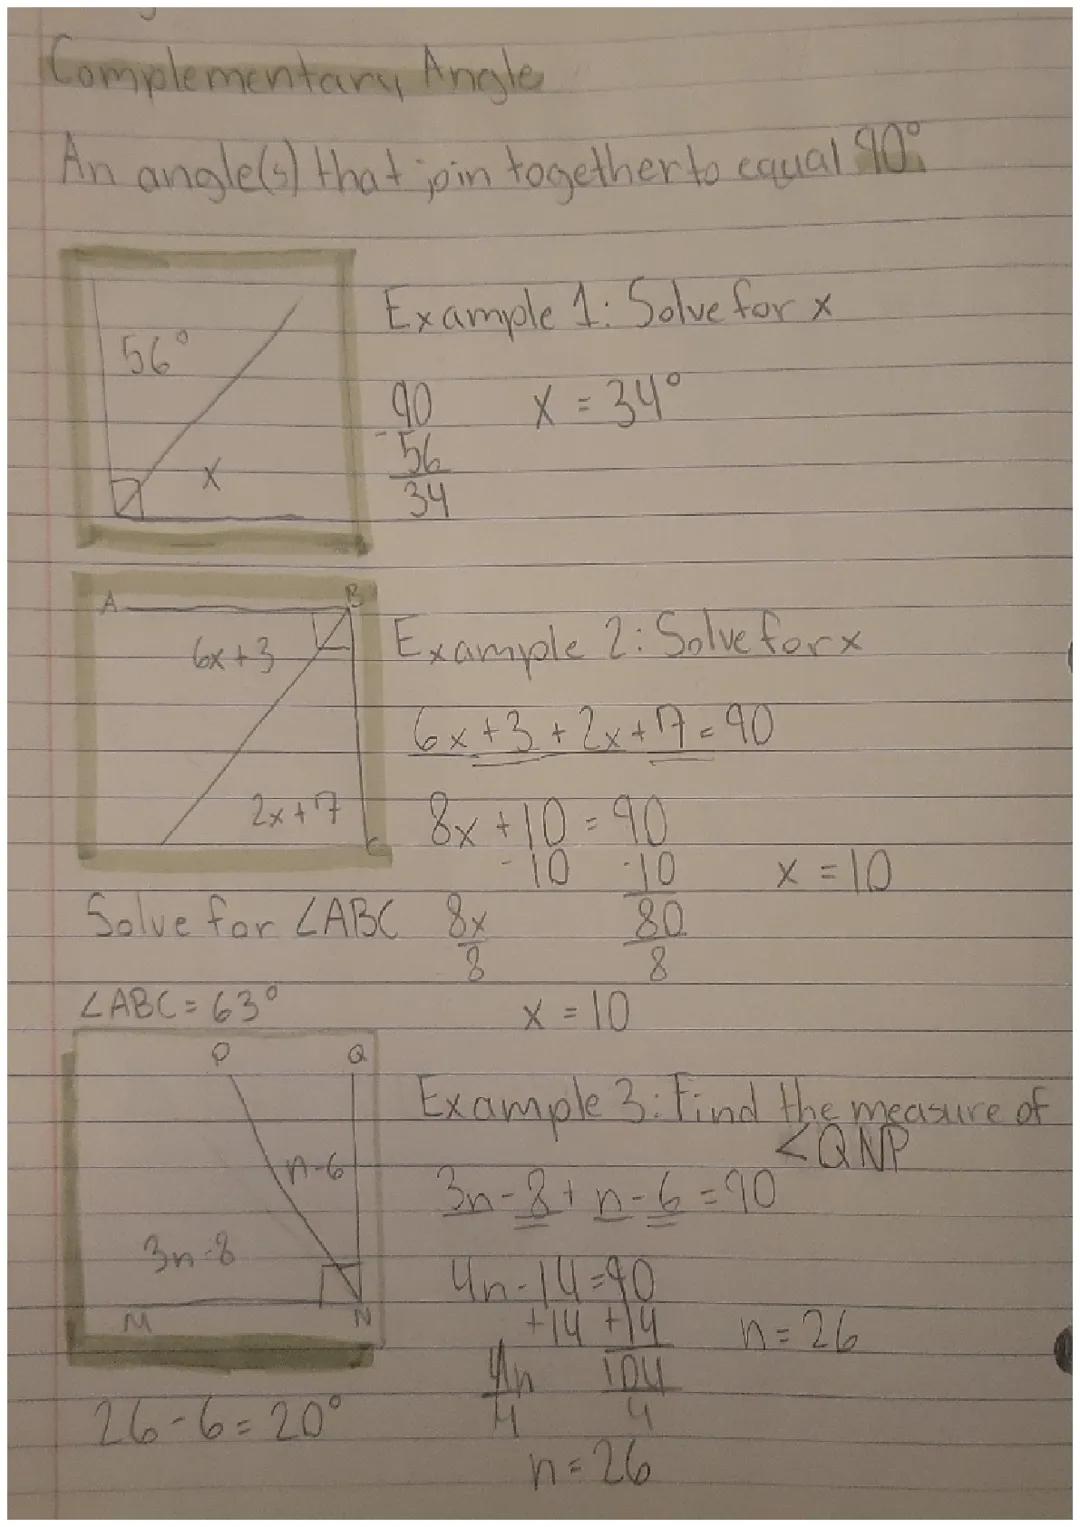 Complementary Angle
An angle(s) that join together to equal 90°
56°
x
Example 1: Solve for x
90 x = 34°
-56
34
A B
6x+3
2x+7
C
Example 2: Solve for x
6x+3+2x+7=90
8x+10=90
-10 -10 x=10
8x 80
8 8
x=10
Solve for ∠ABC
∠ABC=63°
P Q
n-6
3n-8
M N
Example 3: Find the measure of
∠QNP
3n-8+n-6=90
4n-14=90
+14 +14 n=26
4n 104
4 4
n=26
26-6=20°